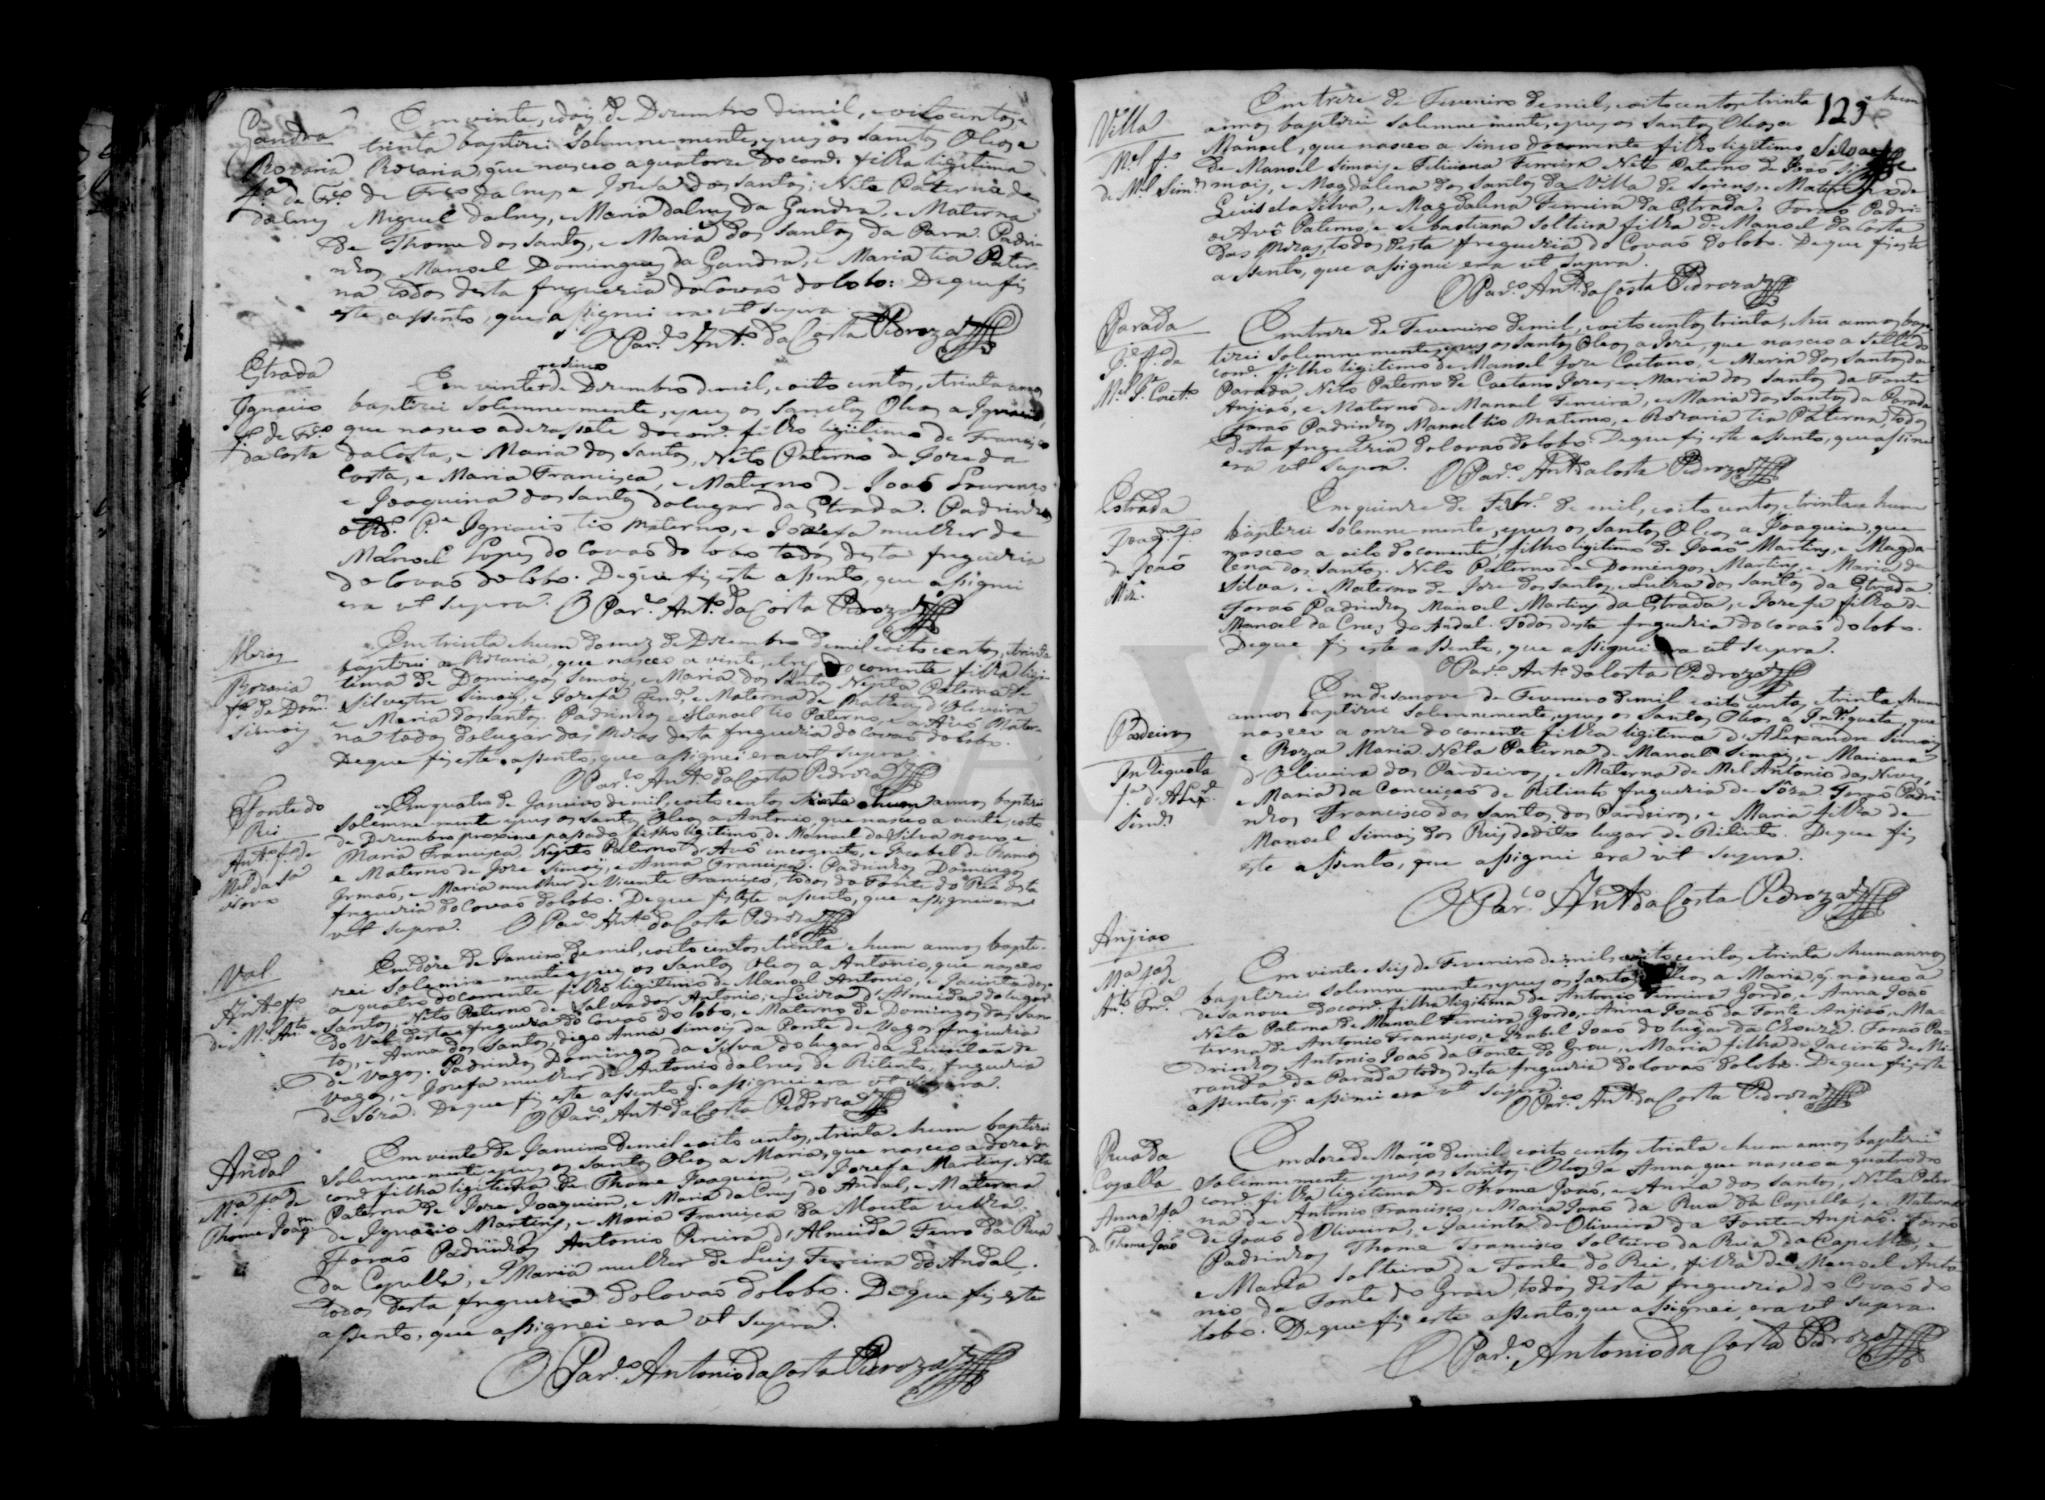 Gandra
Rozaria
f.a de Fr.co
da Cruz
Em vinte, e dois de Dezembro de mil, e oito centos, e
trinta baptizei solemne mente, e puz os sanctos Oleos a
Rozaria, que nasceo a quatorze do corr.e filha ligitima
de Fr.co da Cruz, e Jozefa dos Santos; Neta Paterna de
Miguel da Cruz, e Maria da Cruz da Gandra, e Materna
de Thome dos Santos, e Maria dos Santos da Para. Padri-
nhos Manoel Domingues da Gandra, e Maria tia Pater-
na todos desta freguezia do Covaõ do lobo: De que fiz
este assento, que assignei era ut supra.
O Par.o Ant.o da Costa Pedroza
Estrada
Ignacio
f.o de Fr.co
da Costa
Em vinte e sinco de Dezembro de mil, e oito centos, e trinta annos
baptizei solemne mente, e puz os Sanctos Oleos a Ignacio,
que nasceo a dezassete do corr.e filho ligitimo de Francisco
da Costa, e Maria dos Santos, Neto Paterno de Joze da
Costa, e Maria Francisca, e Materno de Joaõ Lourenço
e Joaquina dos Santos do lugar da Estrada. Padrinhos
o R.do P.e Ignacio tio Materno, e Jozefa mulher de
Manoel Lopes do Covaõ do lobo todos desta freguezia
do Covaõ do lobo. De que fiz este assento, que assignei
era ut supra. O Par.o Ant.o da Costa Pedroza
Mezas
Rozaria
f.a de Dom.os
Simois
Em trinta e hum do mez de Dezembro de mil e oito centos, e trinta
baptizei a Rozaria, que nasceo a vinte, e tres do corrente filha ligi-
tima de Domingos Simois, e Maria dos Santos Neta Paterna de
Silvestre Simois, e Jozefa, e Materna de Matheus d'Oliveira
e Maria dos Santos. Padrinhos Manoel tio Paterno, e a Avó Mater-
na todos do lugar das Mezas desta freguezia do Covaõ do lobo.
De que fiz este assento, que assignei era ut supra.
O Par.o Ant.o da Costa Pedroza
Fonte do
Rei
Ant.o f.o de
M.el da S.a
Novo
Em quatro de Janeiro de mil, e oito centos trinta e hum annos baptizei
solemne mente e puz os santos Oleos a Antonio, que nasceo a vinte, e oito
de Dezembro proximo passado filho ligitimo de Manoel da Silva novo, e
Maria Francisca, Neto Paterno d'Avô incognito, e Izabel de Ramos
e Materno de Joze Simois, e Anna Francisca: Padrinhos Domingos
Irmaõ, e Maria mulher de Vicente Francisco, todos da Fonte do Rei desta
freguezia do Covaõ do lobo. De que fiz este assento, que assignei era
ut supra. O Par.o Ant.o da Costa Pedroza
Val
Ant.o f.o
de M.el Ant.o
Em doze de Janeiro de mil, e oito centos, e trinta e hum annos bapti-
zei solemne mente e puz os Santos Oleos a Antonio, que nasceo
a quatro do corrente filho ligitimo de Manoel Antonio, e Jacinta dos
Santos, Neto Paterno de Salvador Antonio, e Luiza d'Almeida do lugar
do Val desta freguezia do Covaõ do lobo, e Materno de Domingos dos San-
tos, e Anna dos Santos, digo Anna Simois da Ponte de Vagos freguezia
de Vagos. Padrinhos Domingos da Silva do lugar da Quintaã de
Vagos, e Jozefa mulher de Antonio da Cruz de Rilento, freguezia
de Sôza. De que fiz este assento q. assignei era ut supra.
O Par.o Ant.o da Costa Pedroza
Andal
M.a f.a de
Thome Joaq.m
Em vinte de Janeiro de mil e oito centos, e trinta e hum baptizei
solemne mente e puz os Santos Oleos a Maria, que nasceo a doze do
corr.e filha ligitima de Thome Joaquim, e Jozefa Martins, Neta
Paterna de Joze Joaquim, e Maria da Cruz do Andal, e Materna
de Ignacio Martins, e Maria Francisca da Mouta velha.
Foraõ Padrinhos Antonio Pereira d'Almeida Ferro da Rua
da Capella, e Maria mulher de Luis Ferreira do Andal,
todos desta freguezia do Covaõ do lobo. De que fiz este
assento, que assignei era ut supra.
O Par.o Antonio da Costa Pedroza
129
Villa
M.el f.o
de M.el Sim.s
Em treze de Fevereiro de mil, e oito centos e trinta e hum
annos baptizei solemne mente, e puz os Santos Oleos a
Manoel, que nasceo a sinco do corrente filho ligitimo
de Manoel Simois, e Feliciana Ferreira Neto Paterno de Joaõ Si-
mois, e Magdalena dos Santos da Villa de Soiens, e Materno de
Luis da Silva, e Magdalena Ferreira da Estrada. Foraõ Padri-
o Avô Paterno, e Sebastiana solteira filha de Manoel da Costa
das Mezas, todos desta freguezia do Covaõ do lobo. De que fiz este
assento, que assignei era ut supra.
O Par.o Ant.o da Costa Pedroza
Parada
J.e f.o de
M.el J.e Caet.o
Em treze de Fevereiro de mil, e oito centos, trinta, e hum annos bap-
tizei solemne mente, e puz os santos Oleos a Joze, que nasceo a sette do
corr.e filho ligitimo de Manoel Joze Caetano, e Maria dos Santos da
Parada, Neto Paterno de Caetano Joze, e Maria dos Santos da Fonte
Anjiaõ, e Materno de Manoel Ferreira, e Maria dos Santos da Parada
Foraõ Padrinhos Manoel tio Materno, e Rozaria tia Paterna, todos
desta freguezia do Covaõ do lobo. De que fiz este assento, que assinei
era ut supra. O Par.o Ant.o da Costa Pedroza
Estrada
Joaq.m f.o
de Joaõ
Miz.
Em quinze de Febr.o de mil, e oito centos, e trinta e hum
baptizei solemne mente, e puz os santos Oleos a Joaquim, que
nasceo a oito do corrente, filho ligitimo de Joaõ Martins, e Magda-
lena dos Santos. Neto Paterno de Domingos Martins, e Maria da
Silva, e Materno de Joze dos Santos, e Luiza dos Santos da Estrada.
Foraõ Padrinhos Manoel Martins da Estrada, e Jozefa filha de
Manoel da Cruz do Andal. Todos desta freguezia do Covaõ do lobo.
De que fiz este assento, que assignei era ut supra.
O Par.o Ant.o da Costa Pedroza
Pardeiros
f.a d'Alex.e
Sim.s
Em desanove de Fevereiro de mil e oito centos, e trinta e hum
annos baptizei solemnemente, e puz os Santos Oleos a, que
nasceo a onze do corrente filha ligitima d'Alexandre Simois
e Roza Maria Neta Paterna de Manoel Simois, e Marianna
d'Oliveira dos Pardeiros, e Materna de M.el Antonio das Neves,
e Maria da Conceiçaõ de Rilento freguezia de Sôza. Foraõ Padri-
nhos Francisco dos Santos dos Pardeiros, e Maria filha de
Manoel Simois dos Reis do dito lugar de Rilento. De que fiz
este assento, que assignei era ut supra.
O Par.o Ant.o da Costa Pedroza
Anjiao
M.a f.a de
Ant.o Fr.a
Em vinte e seis de Fevereiro de mil, e oito centos e trinta e hum annos
baptizei solemne mente, e puz os Santos Oleos a Maria, q. nasceo a
desanove do corr.e filha ligitima de Antonio Ferreira Gordo, e Anna Joaõ
Neta Paterna de Manoel Ferreira Gordo, e Anna Joaõ da Fonte Anjiaõ, e Ma-
terna de Antonio Francisco, e Izabel Joaõ do lugar da Choura. Foraõ Pa-
drinhos Antonio Joaõ da Fonte do Grou, e Maria filha de Jacinto de Mi-
randa da Parada todos desta freguezia do Covaõ do lobo. De que fiz este
assento, q. assinei era ut supra.
O Par.o Ant.o da Costa Pedroza
Rua da
Capella
Anna f.a
de Thome Joaõ
Em doze de Março de mil e oito centos, trinta e hum annos baptizei
solemne mente e puz os Santos Oleos a Anna que nasceo a quatro do
corr.e filha ligitima de Thome Joaõ, e Anna dos Santos, Neta Pater-
na de Antonio Francisco, e Maria Joaõ da Rua da Capella, e Materna
de Joaõ d'Oliveira, e Jacinta de Oliveira da Fonte Anjiaõ. Foraõ
Padrinhos Thome Francisco solteiro da Rua da Capella, e
e Maria solteira da Fonte do Rei, filha de Manoel Anto-
nio da Fonte do Grou todos desta freguezia do Covaõ do
lobo. De que fiz este assento, que assignei, era ut supra.
O Par.o Antonio da Costa Pedroza